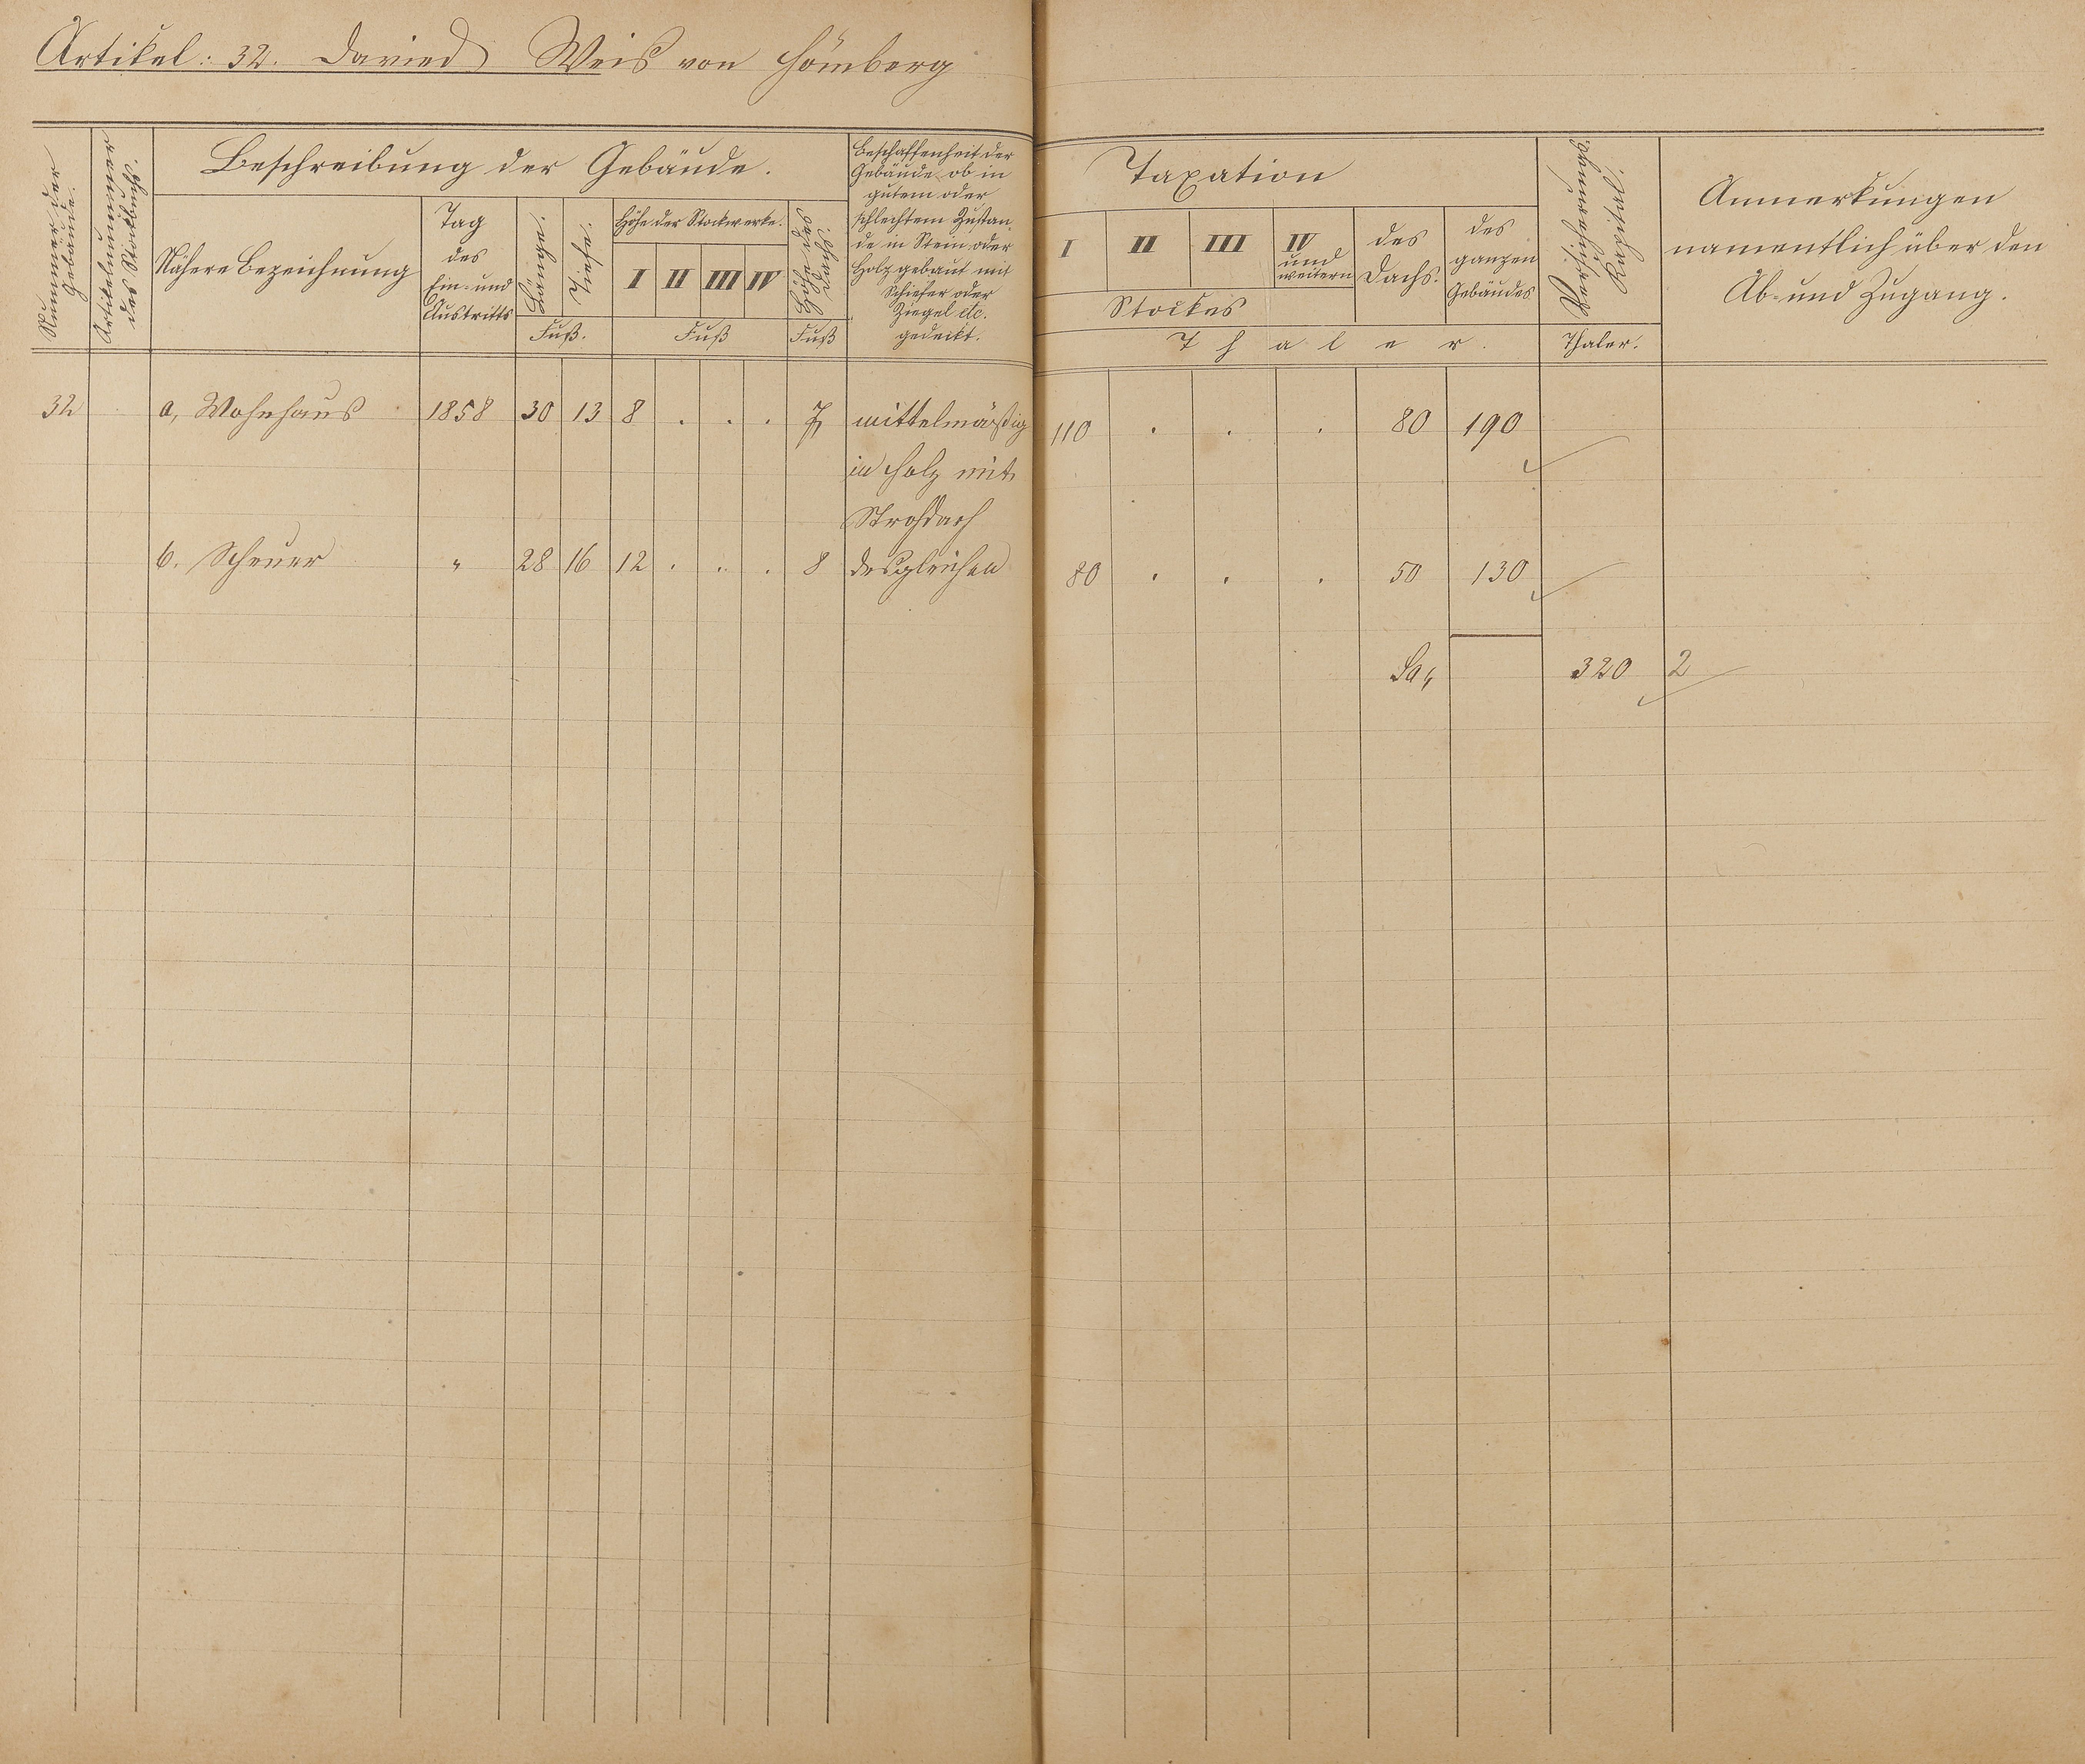 Artikel: 32. David Weis von Hömberg
Nummer der Gebäude.
Artikelnummer des Stockbuchs.
Beschreibung der Gebäude.
Nähere Bezeichnung
Tag
des
Ein- und
Austritts
Länge.
Tiefe.
Fuß.
Höhe der Stockwerke.
I II III IV
Fuß
Höhe des Dachs.
Fuß
Beschaffenheit der
Gebäude ob in
gutem oder
schlechtem Zustan-
de in Stein oder
Holz gebaut mit
Schiefer oder
Ziegel etc.
gedeckt.
Taxation
I II III IV
und
weitern
Stockes
des
Dachs.
des
ganzen
Gebäudes
Thaler.
Versicherungs-
Kapital.
Thaler.
Anmerkungen
namentlich über den
Ab- und Zugang.
32 a, Wohnhaus 1858 30 13 8 . . . 7 mittelmäßig 110 . . . 80 190
in Holz mit
Strohdach
b. Scheuer " 28 16 12 . . . 8 desgleichen 80 . . . 50 130
Sa, 320 2